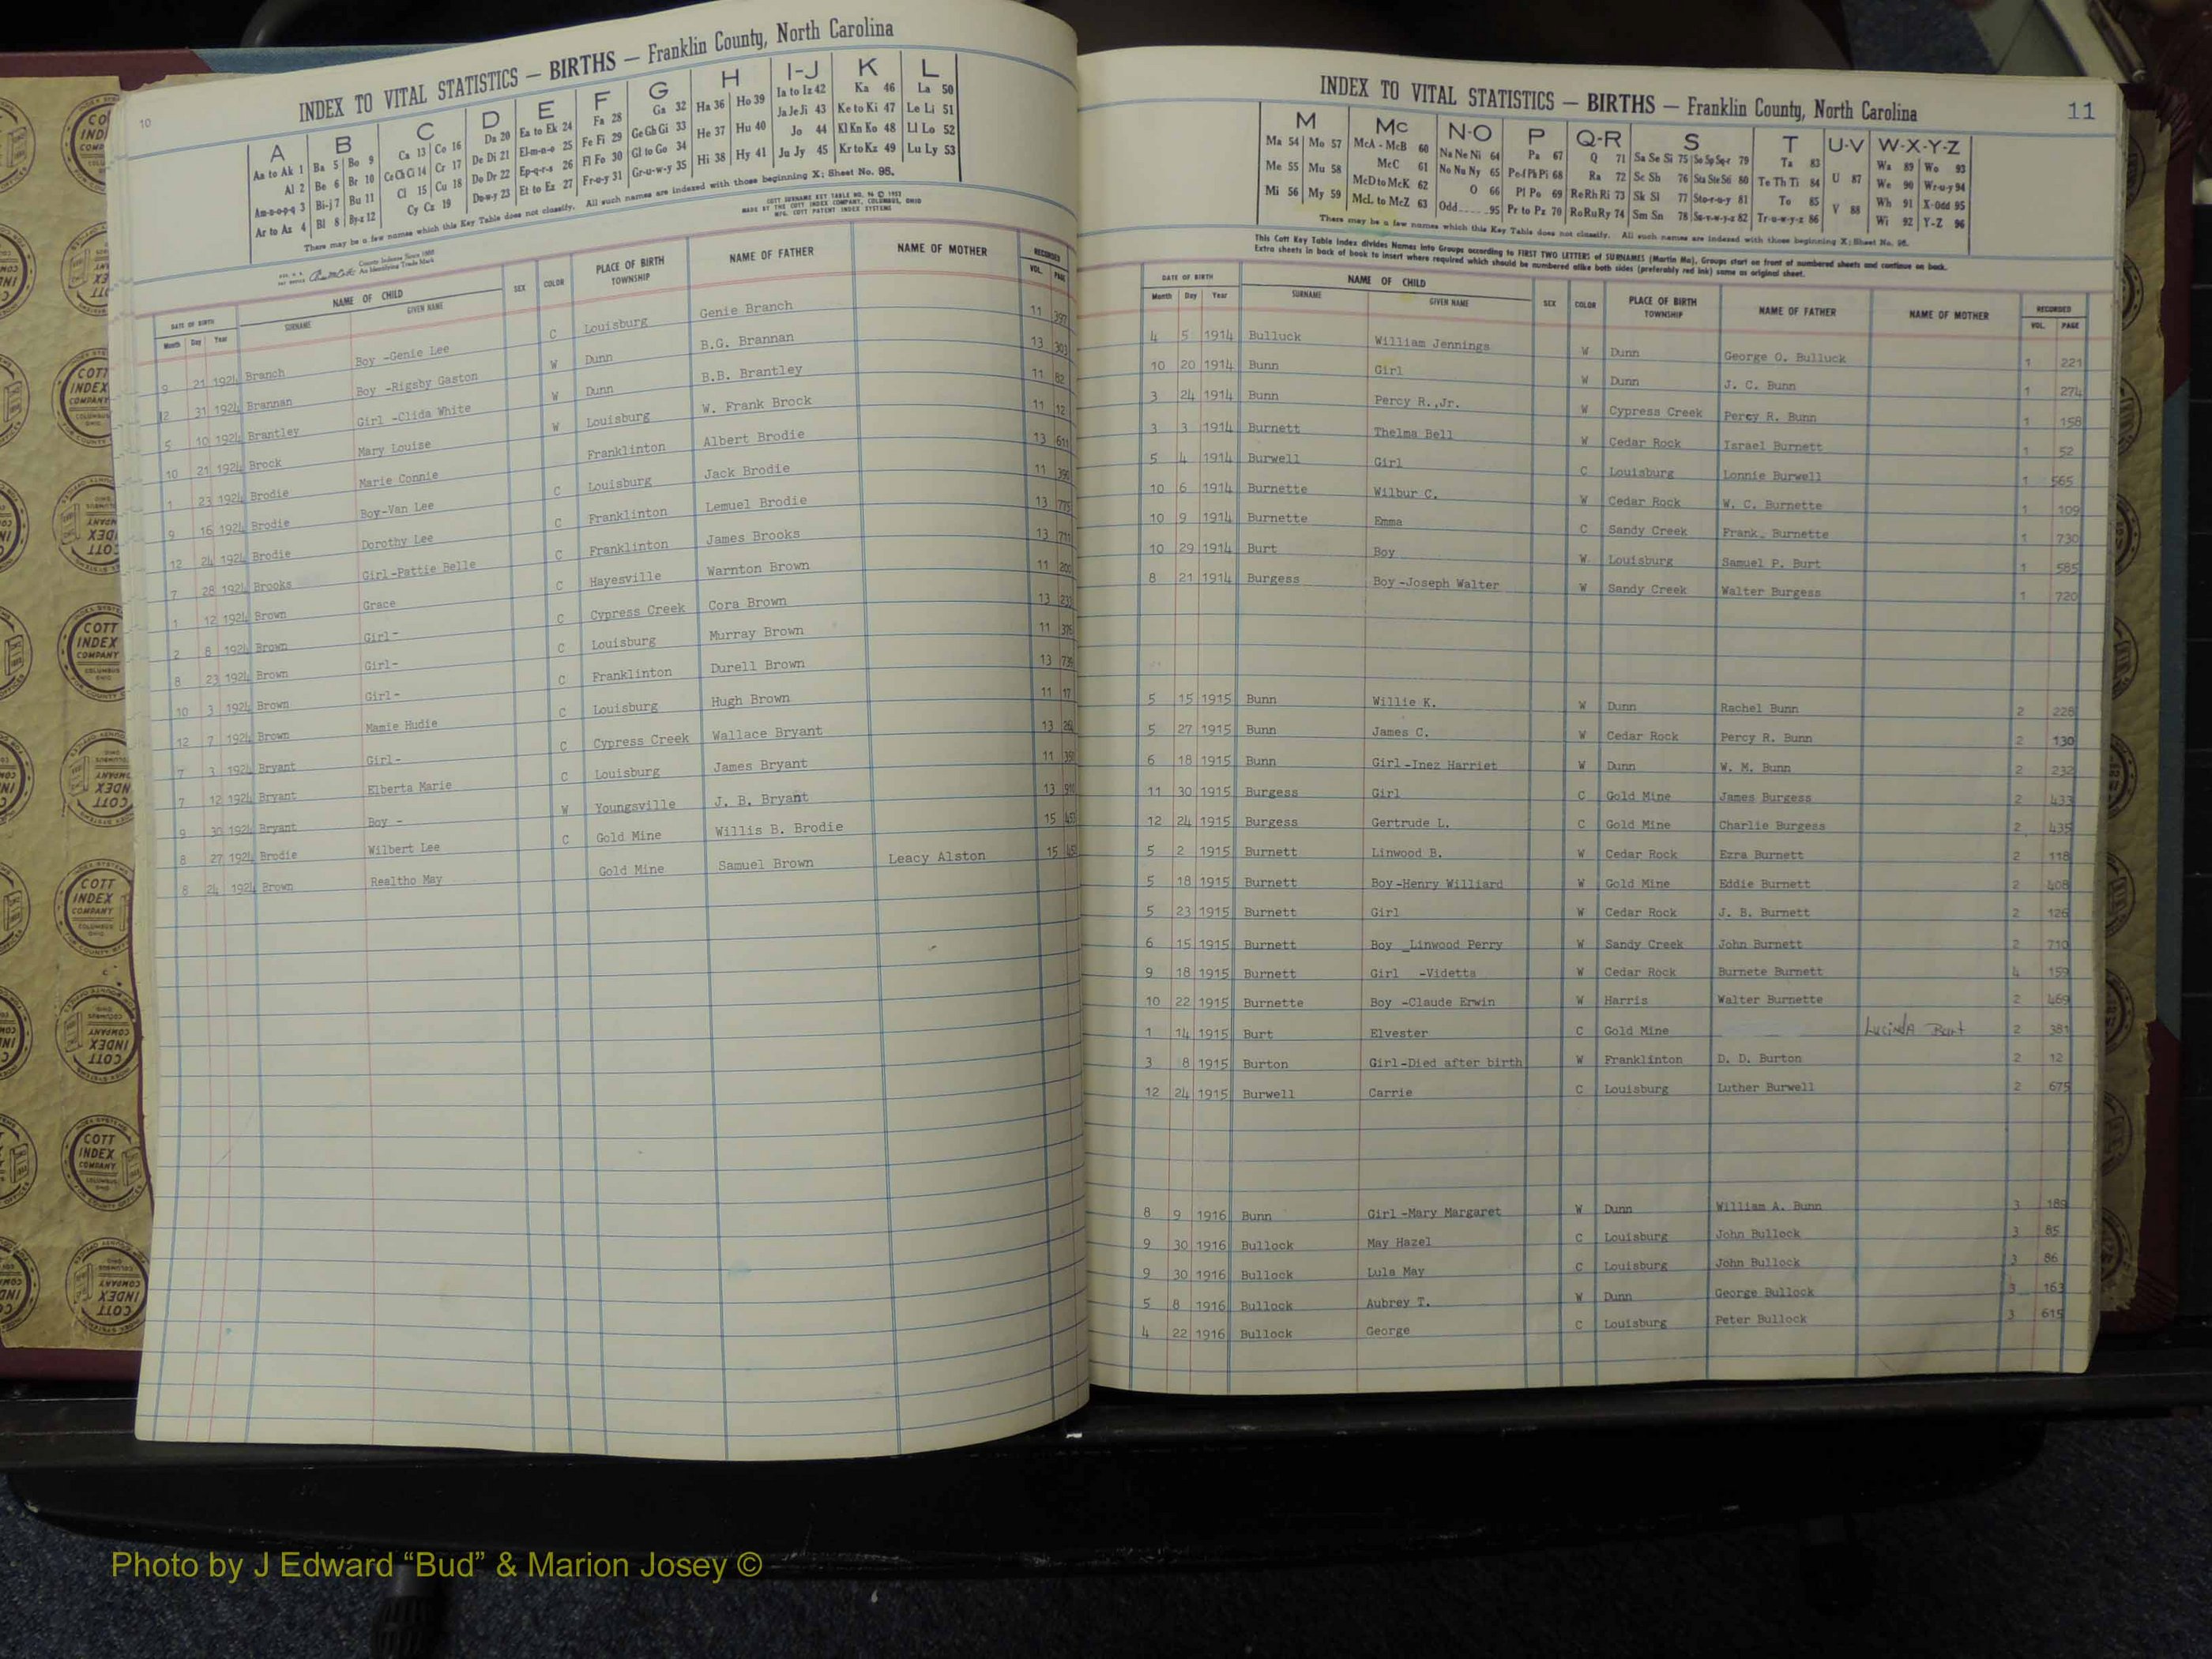 10
INDEX TO VITAL STATISTICS — BIRTHS — Franklin County, North Carolina
A B C D E F G H I-J K L
Aa to Ak 1 Ba 5 Bo 9 Ca 13 Co 16 Da 20 Ea to Ek 24 Fa 28 Ga 32 Ha 36 Ho 39 Ia to Iz 42 Ka 46 La 50
Al 2 Be 6 Br 10 Ce Ch Ci 14 Cr 17 De Di 21 El-m-n-o 25 Fe Fi 29 Ge Gh Gi 33 He 37 Hu 40 Ja Je Ji 43 Ke to Ki 47 Le Li 51
Am-n-o-p-q 3 Bi-j 7 Bu 11 Cl 15 Cu 18 Do Dr 22 Ep-q-r-s 26 Fl Fo 30 Gl to Go 34 Hi 38 Hy 41 Jo 44 Kl Kn Ko 48 Ll Lo 52
Ar to Az 4 Bl 8 By-z 12 Cy Cz 19 Du-w-y 23 Et to Ez 27 Fr-u-y 31 Gr-u-w-y 35 Ju Jy 45 Kr to Kz 49 Lu Ly 53
There may be a few names which this Key Table does not classify. All such names are indexed with those beginning X; Sheet No. 95.
COTT SURNAME KEY TABLE NO. 96 © 1952
MADE BY THE COTT INDEX COMPANY, COLUMBUS, OHIO
MFG. COTT PATENT INDEX SYSTEMS
County Indexes Since 1888
An Identifying Trade Mark
DATE OF BIRTH NAME OF CHILD SEX COLOR PLACE OF BIRTH TOWNSHIP NAME OF FATHER NAME OF MOTHER RECORDED
Month Day Year SURNAME GIVEN NAME VOL. PAGE
9 21 1924 Branch Boy -Genie Lee C Louisburg Genie Branch 11 397
12 31 1924 Brannan Boy -Rigsby Gaston W Dunn B.G. Brannan 13 303
5 10 1924 Brantley Girl -Clida White W Dunn B.B. Brantley 11 82
10 21 1924 Brock Mary Louise W Louisburg W. Frank Brock 11 12
1 23 1924 Brodie Marie Connie Franklinton Albert Brodie 13 611
9 16 1924 Brodie Boy-Van Lee C Louisburg Jack Brodie 11 396
12 24 1924 Brodie Dorothy Lee C Franklinton Lemuel Brodie 13 775
7 28 1924 Brooks Girl-Pattie Belle C Franklinton James Brooks 13 711
1 12 1924 Brown Grace C Hayesville Warnton Brown 11 200
2 8 1924 Brown Girl- C Cypress Creek Cora Brown 13 233
8 23 1924 Brown Girl- C Louisburg Murray Brown 11 376
10 3 1924 Brown Girl- C Franklinton Durell Brown 13 739
12 7 1924 Brown Mamie Hudie C Louisburg Hugh Brown 11 17
7 3 1924 Bryant Girl- C Cypress Creek Wallace Bryant 13
7 12 1924 Bryant Elberta Marie C Louisburg James Bryant 11
9 30 1924 Bryant Boy - W Youngsville J. B. Bryant 13
8 27 1924 Brodie Wilbert Lee C Gold Mine Willis B. Brodie 15
8 24 1924 Brown Realtho May Gold Mine Samuel Brown Leacy Alston 15
INDEX TO VITAL STATISTICS — BIRTHS — Franklin County, North Carolina 11
M Mc N-O P Q-R S T U-V W-X-Y-Z
Ma 54 Mo 57 McA - McB 60 Na Ne Ni 64 Pa 67 Q 71 Sa Se Si 75 So Sp Sq-r 79 Ta 83 U 87 Wa 89 Wo 93
Me 55 Mu 58 McC 61 No Nu Ny 65 Pe-f Ph Pi 68 Ra 72 Sc Sh 76 Sta Ste Sti 80 Te Th Ti 84 V 88 We 90 Wr-u-y 94
Mi 56 My 59 McD to McK 62 O 66 Pl Po 69 Re Rh Ri 73 Sk Sl 77 Sto-r-u-y 81 To 85 Wh 91 X-Odd 95
McL to McZ 63 Odd 95 Pr to Pz 70 Ro Ru Ry 74 Sm Sn 78 Su-v-w-y-z 82 Tr-u-w-y-z 86 Wi 92 Y-Z 96
There may be a few names which this Key Table does not classify. All such names are indexed with those beginning X; Sheet No. 95.
This Cott Key Table Index divides Names into Groups according to FIRST TWO LETTERS of SURNAMES (Martin Ma). Groups start on front of numbered sheets and continue on back.
Extra sheets in back of book to insert where required which should be numbered alike both sides (preferably red ink) same as original sheet.
DATE OF BIRTH NAME OF CHILD SEX COLOR PLACE OF BIRTH TOWNSHIP NAME OF FATHER NAME OF MOTHER RECORDED
Month Day Year SURNAME GIVEN NAME VOL. PAGE
4 5 1914 Bulluck William Jennings W Dunn George O. Bulluck 1 221
10 20 1914 Bunn Girl W Dunn J. C. Bunn 1 274
3 24 1914 Bunn Percy R.,Jr. W Cypress Creek Percy R. Bunn 1 158
3 3 1914 Burnett Thelma Bell W Cedar Rock Israel Burnett 1 52
5 4 1914 Burwell Girl C Louisburg Lonnie Burwell 1 565
10 6 1914 Burnette Wilbur C. W Cedar Rock W. C. Burnette 1 109
10 9 1914 Burnette Emma C Sandy Creek Frank Burnette 1 730
10 29 1914 Burt Boy W Louisburg Samuel P. Burt 1 585
8 21 1914 Burgess Boy -Joseph Walter W Sandy Creek Walter Burgess 1 720
5 15 1915 Bunn Willie K. W Dunn Rachel Bunn 2 228
5 27 1915 Bunn James C. W Cedar Rock Percy R. Bunn 2 130
6 18 1915 Bunn Girl -Inez Harriet W Dunn W. M. Bunn 2 232
11 30 1915 Burgess Girl C Gold Mine James Burgess 2 433
12 24 1915 Burgess Gertrude L. C Gold Mine Charlie Burgess 2 435
5 2 1915 Burnett Linwood B. W Cedar Rock Ezra Burnett 2 118
5 18 1915 Burnett Boy -Henry Williard W Gold Mine Eddie Burnett 2 408
5 23 1915 Burnett Girl W Cedar Rock J. B. Burnett 2 126
6 15 1915 Burnett Boy _Linwood Perry W Sandy Creek John Burnett 2 710
9 18 1915 Burnett Girl -Videtta W Cedar Rock Burnete Burnett 4 159
10 22 1915 Burnette Boy -Claude Erwin W Harris Walter Burnette 2 469
1 14 1915 Burt Elvester C Gold Mine Lucinda Burt 2 381
3 8 1915 Burton Girl -Died after birth W Franklinton D. D. Burton 2 12
12 24 1915 Burwell Carrie C Louisburg Luther Burwell 2 675
8 9 1916 Bunn Girl -Mary Margaret W Dunn William A. Bunn 3 189
9 30 1916 Bullock May Hazel C Louisburg John Bullock 3 85
9 30 1916 Bullock Lula May C Louisburg John Bullock 3 86
5 8 1916 Bullock Aubrey T. W Dunn George Bullock 3 163
4 22 1916 Bullock George C Louisburg Peter Bullock 3 615
COTT INDEX COMPANY COLUMBUS OHIO
Photo by J Edward “Bud” & Marion Josey ©